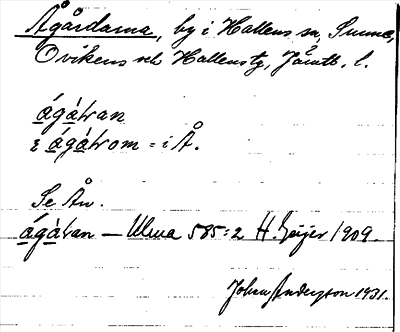 Ågårdarna, by i Hallens sn, Sunne,
Ovikens och Hallens tg, Jämtl. l.
ágátran
i ágátrom = i Å.
Se Ån.
ágátran — Ulma 585:2 H. Geijer 1909.
Johan Anderzon 1931.